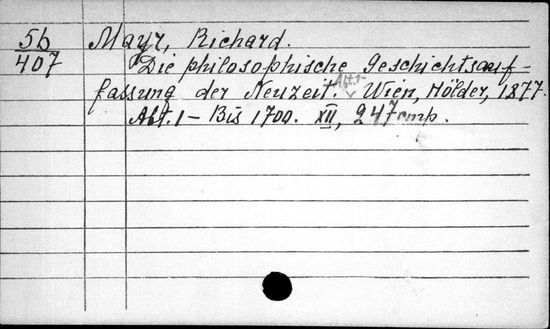 5b Mayr, Richard.
407 Die philosophische Geschichtsauf-
fassung der Neuzeit. Abt. 1- Wien, Hölder, 1877.
Abt. 1 – Bis 1700. XII, 247 стр.